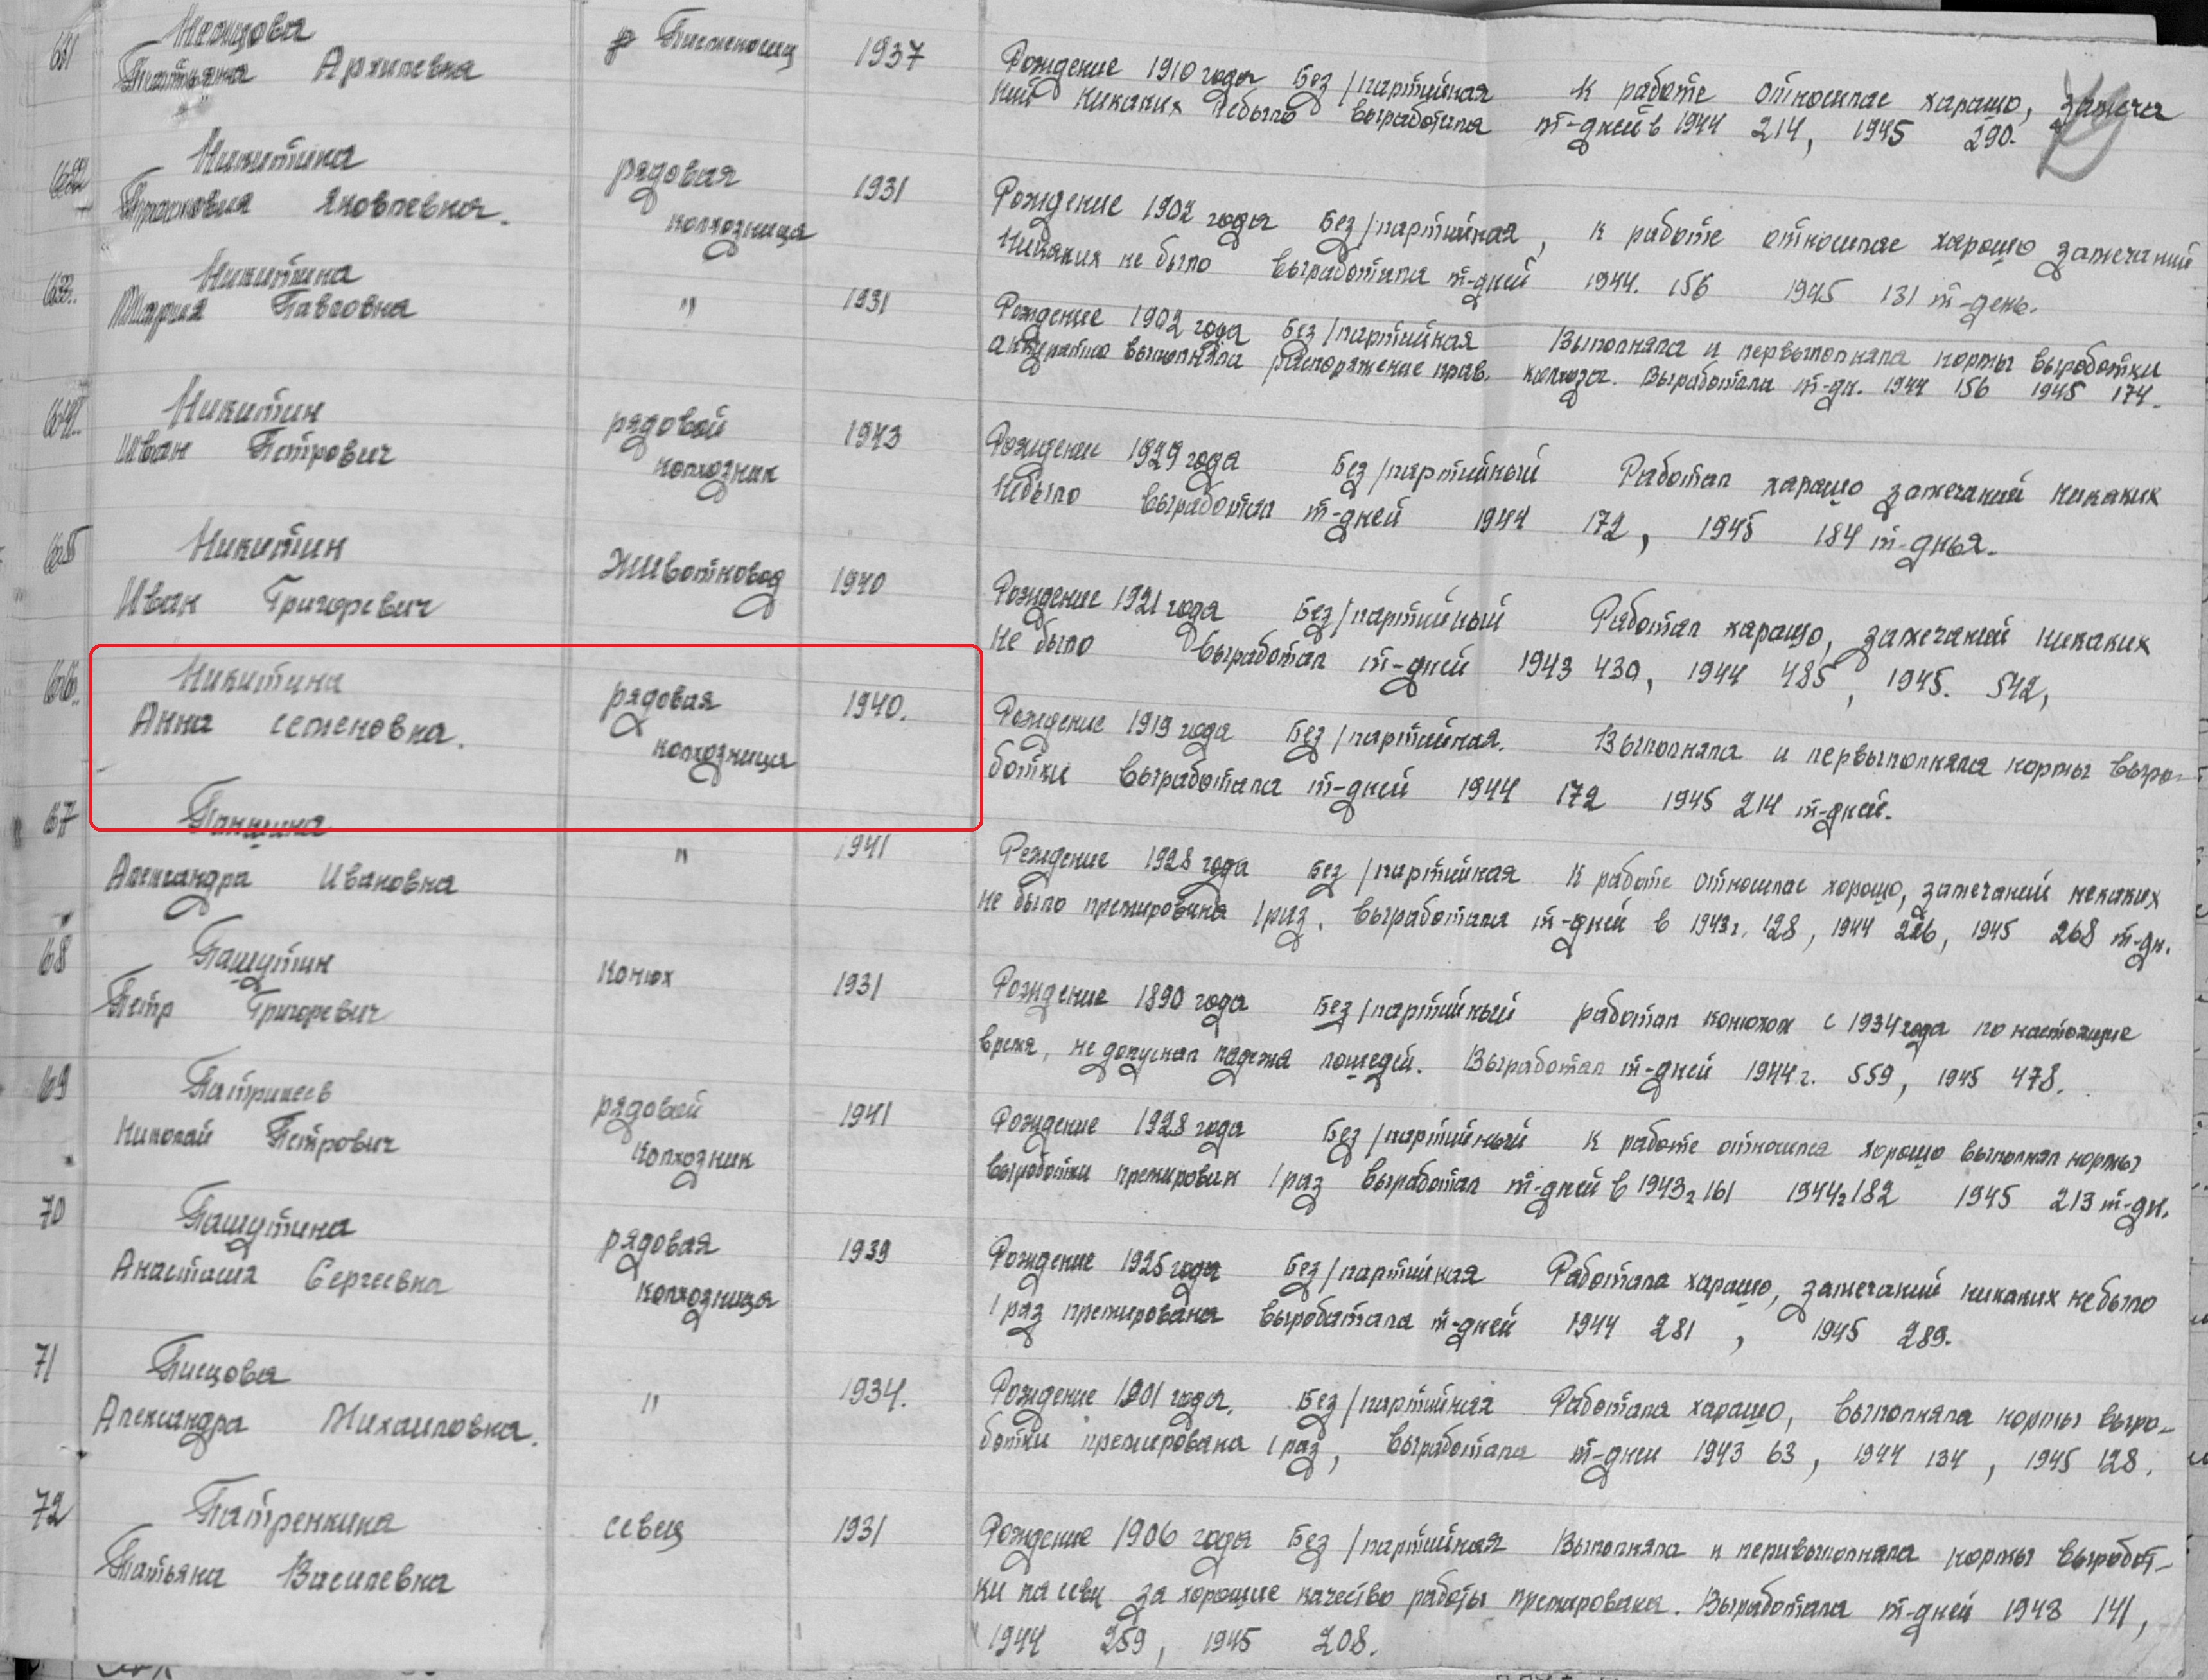 61 Немцова р Письмоносец 1937 Рождение 1910 года Без/партийная К работе относилас харашо, замеча
Татьяна Архиповна ний никаких небыло выработала т-дней в 1944 214, 1945 290.
62 Никитина рядовая 1931 Рождение 1902 года Без/партийная, к работе относилас харошо замечаний
Прасковия Яковлевна. колхозница Никаких не было выработала т-дней 1944. 156 1945 131 т-день.
63. Никитина " 1931 Рождение 1902 года Без/партийная Выполняла и первыполняла нормы выработки
Мария Павловна аккуратно выполняла распоряжение прав. колхоза. Выработала т-дн. 1944 156 1945 174.
64. Никитин рядовой 1943 Рождение 1929 года Без/партийный Работал харашо замечаний никаких
Иван Петрович колхозник Небыло выработал т-дней 1944 172, 1945 184 т-днья.
65 Никитин Животновод 1940 Рождение 1921 года Без/партийный Работал харашо, замечаний никаких
Иван Григоревич не было Выработал т-дней 1943 430, 1944 485, 1945. 542,
66. Никитина рядовая 1940. Рождение 1919 года Без/партийная. Выполняла и первыполняла нормы выра-
Анна семеновна. колхозница ботки Выработала т-дней 1944 172 1945 214 т-дней.
67 Паншина " 1941 Рождение 1928 года Без/партийная К работе относилас хорошо, замечаний некаких
Александра Ивановна не было премирована 1 раз. Выработала т-дней в 1943 г. 128, 1944 226, 1945 268 т-дн.
68 Пашутин Конюх 1931 Рождение 1890 года Без/партийный работал конюхом с 1934 года по настоящие
Петр Григоревич время, не допускал падежа лошедей. Выработал т-дней 1944 г. 559, 1945 478.
69 Патрикеев рядовой 1941 Рождение 1928 года Без/партийный к работе относился хорошо выполнял нормы
Николай Петрович Колхозник выработки премирован 1 раз выработал т-дней в 1943 г 161 1944 г 182 1945 213 т-дн.
70 Пашутина рядовая 1939 Рождение 1925 года Без/партийная Работала харашо, замечаний никаких небыло
Анастасия Сергеевна колхозница 1 раз премирована выробатала т-дней 1944 281, 1945 289.
71 Писцова " 1934. Рождение 1901 года. Без/партийная Работала харашо, выполняла нормы выра-
Александра Михаиловна. ботки премирована 1 раз, выработала т-дней 1943 63, 1944 134, 1945 128.
72 Патренкина севец 1931 Рождение 1906 года Без/партийная Выполняла и перивыполняла нормы выработ-
Татьяна Василевна ки на севу за хорошие качество работы премирована. Выработала т-дней 1943 141,
1944 259, 1945 208.